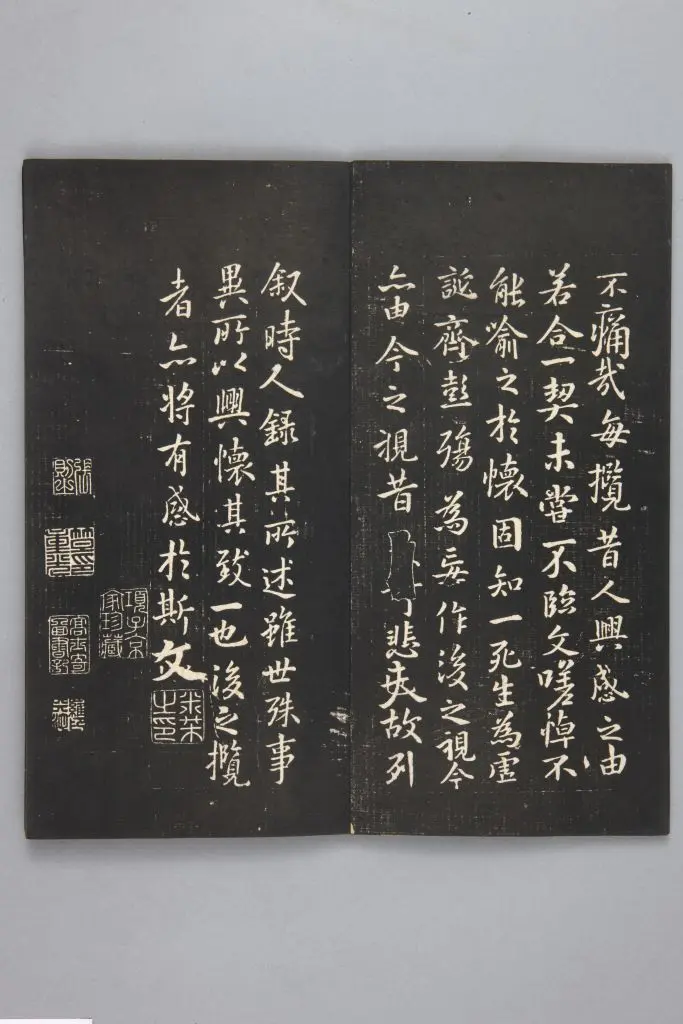 不痛哉每攬昔人興感之由
若合一契未嘗不臨文嗟悼不
能喻之於懷固知一死生為虛
誕齊彭殤為妄作後之視今
亦由今之視昔悲夫故列
叙時人錄其所述雖世殊事
異所以興懷其致一也後之攬
者亦將有感於斯文
米芾之印
項子京家珍藏